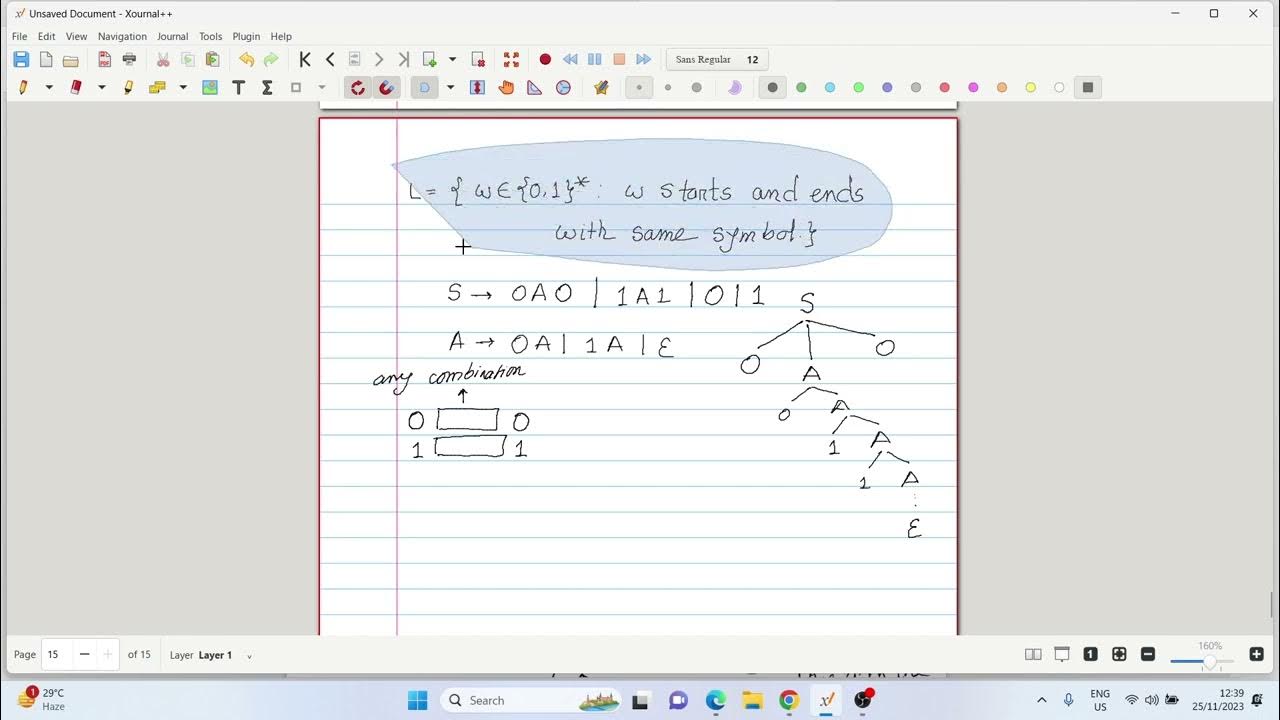 Unsaved Document - Xournal++
File Edit View Navigation Journal Tools Plugin Help
Sans Regular 12
L = { w∈{0,1}*: w starts and ends
with same symbol.}
S → 0A0 | 1A1 | 0 | 1
A → 0A | 1A | ε
any combination
↑
0 0
1 1
S
0 A 0
0 A
1 A
1 A
ε
Page 15 of 15 Layer Layer 1
160%
1
29°C
Haze
1
Search
ENG
US
12:39
25/11/2023